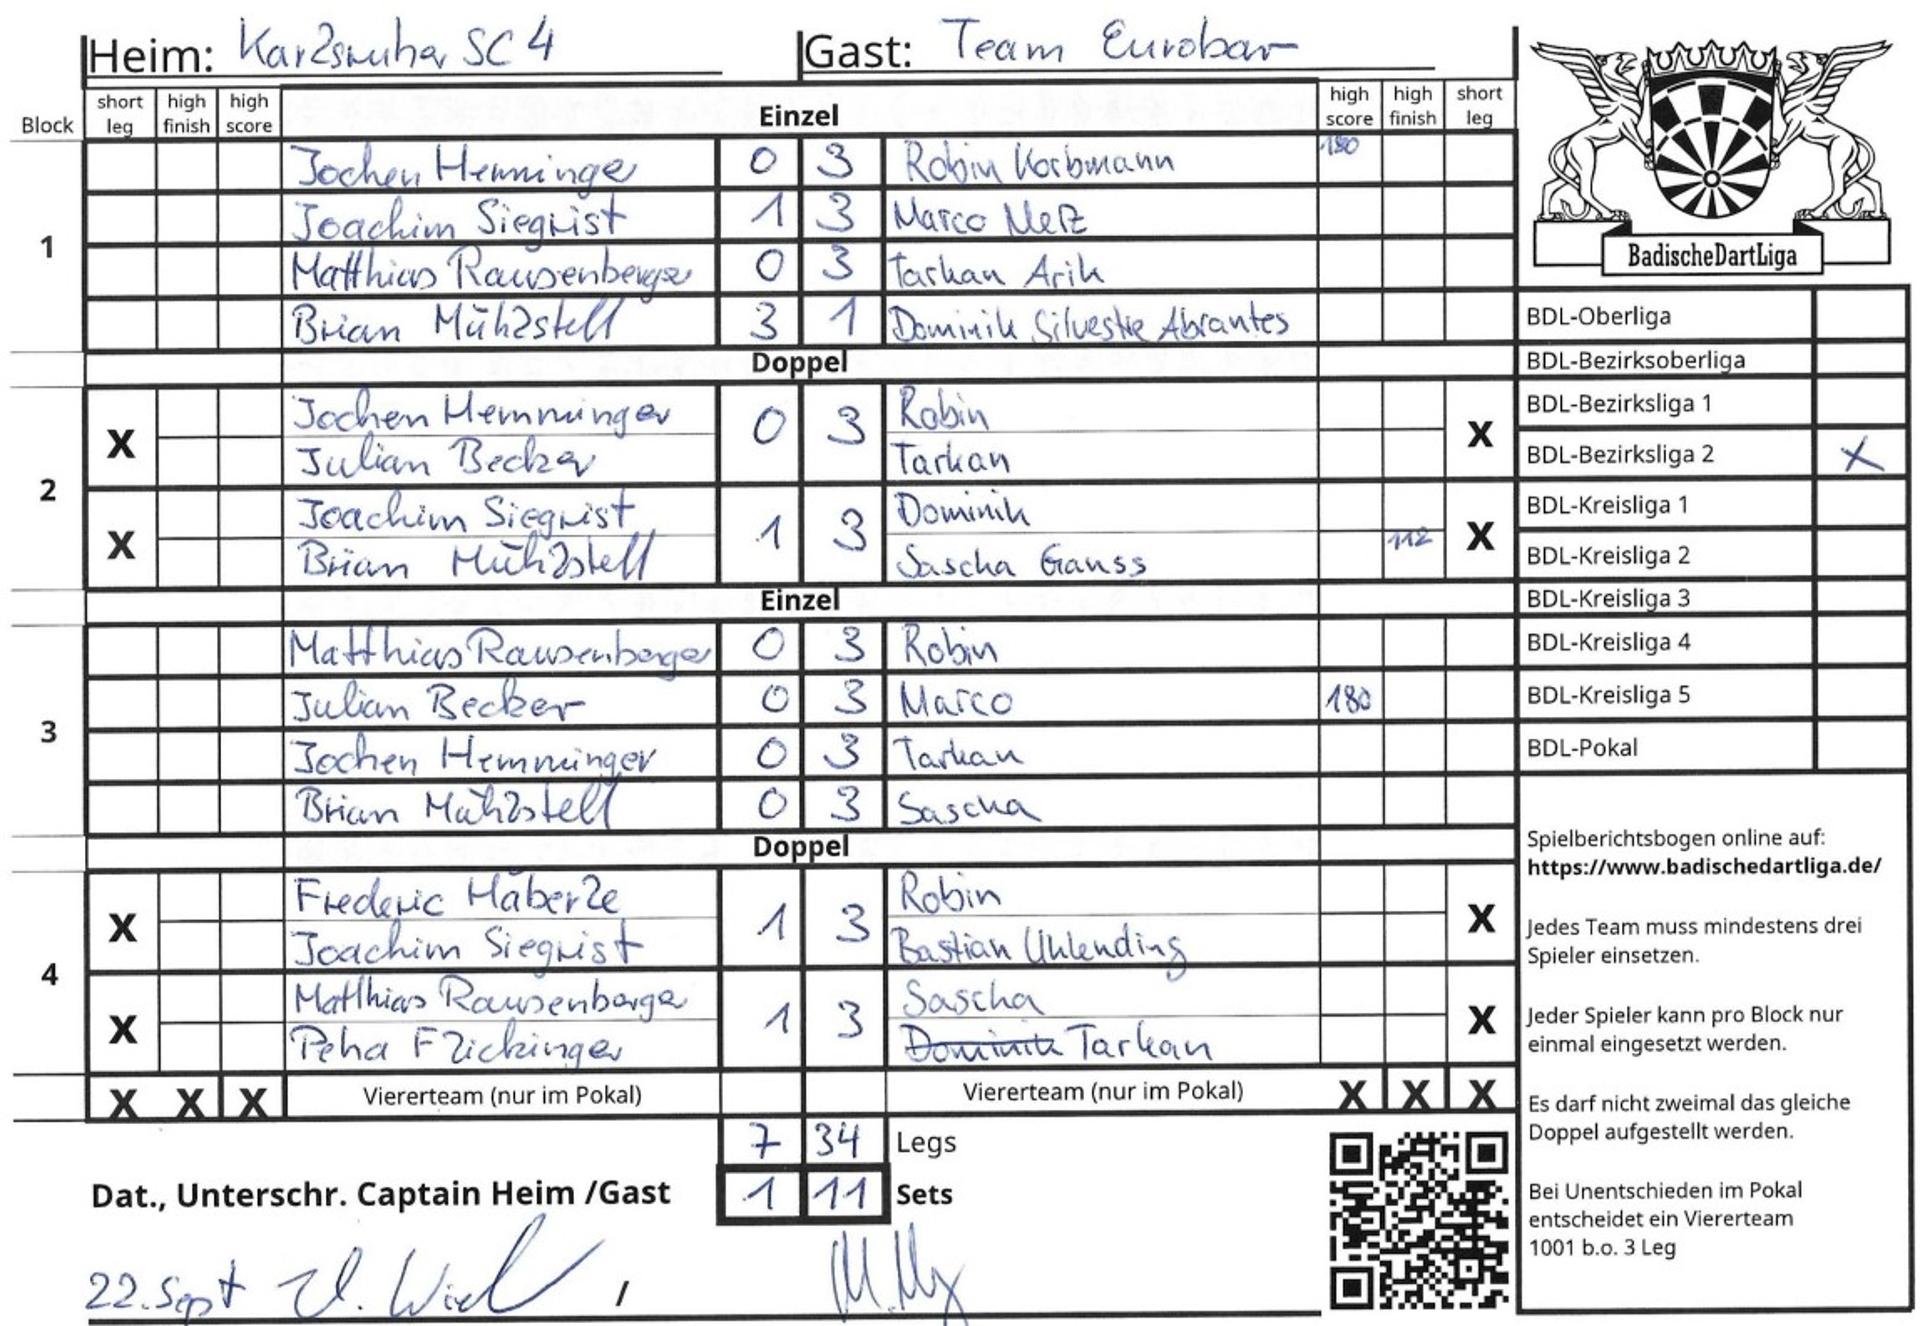 Heim: Karlsruher SC 4 Gast: Team Eurobar
Block short leg high finish high score Einzel high score high finish short leg
1
Jochen Hemminger 0 3 Robin Korbmann 180
Joachim Siegrist 1 3 Marco Metz
Matthias Rausenberger 0 3 Tarkan Arik
Brian Mühlstell 3 1 Dominik Silvestre Abrantes
Doppel
2
X Jochen Hemminger 0 3 Robin X
Julian Becker Tarkan
X Joachim Siegrist 1 3 Dominik X
Brian Mühlstell Sascha Gauss 112
Einzel
3
Matthias Rausenberger 0 3 Robin
Julian Becker 0 3 Marco 180
Jochen Hemminger 0 3 Tarkan
Brian Mühlstell 0 3 Sascha
Doppel
4
X Frederic Häberle 1 3 Robin X
Joachim Siegrist Bastian Uhlending
X Matthias Rausenberger 1 3 Sascha X
Flickinger Dominik Tarkan
X X X Viererteam (nur im Pokal) Viererteam (nur im Pokal) X X X
7 34 Legs
Dat., Unterschr. Captain Heim /Gast 1 11 Sets
22. Sept /
BadischeDartLiga
BDL-Oberliga
BDL-Bezirksoberliga
BDL-Bezirksliga 1
BDL-Bezirksliga 2 X
BDL-Kreisliga 1
BDL-Kreisliga 2
BDL-Kreisliga 3
BDL-Kreisliga 4
BDL-Kreisliga 5
BDL-Pokal
Spielberichtsbogen online auf:
https://www.badischedartliga.de/
Jedes Team muss mindestens drei
Spieler einsetzen.
Jeder Spieler kann pro Block nur
einmal eingesetzt werden.
Es darf nicht zweimal das gleiche
Doppel aufgestellt werden.
Bei Unentschieden im Pokal
entscheidet ein Viererteam
1001 b.o. 3 Leg